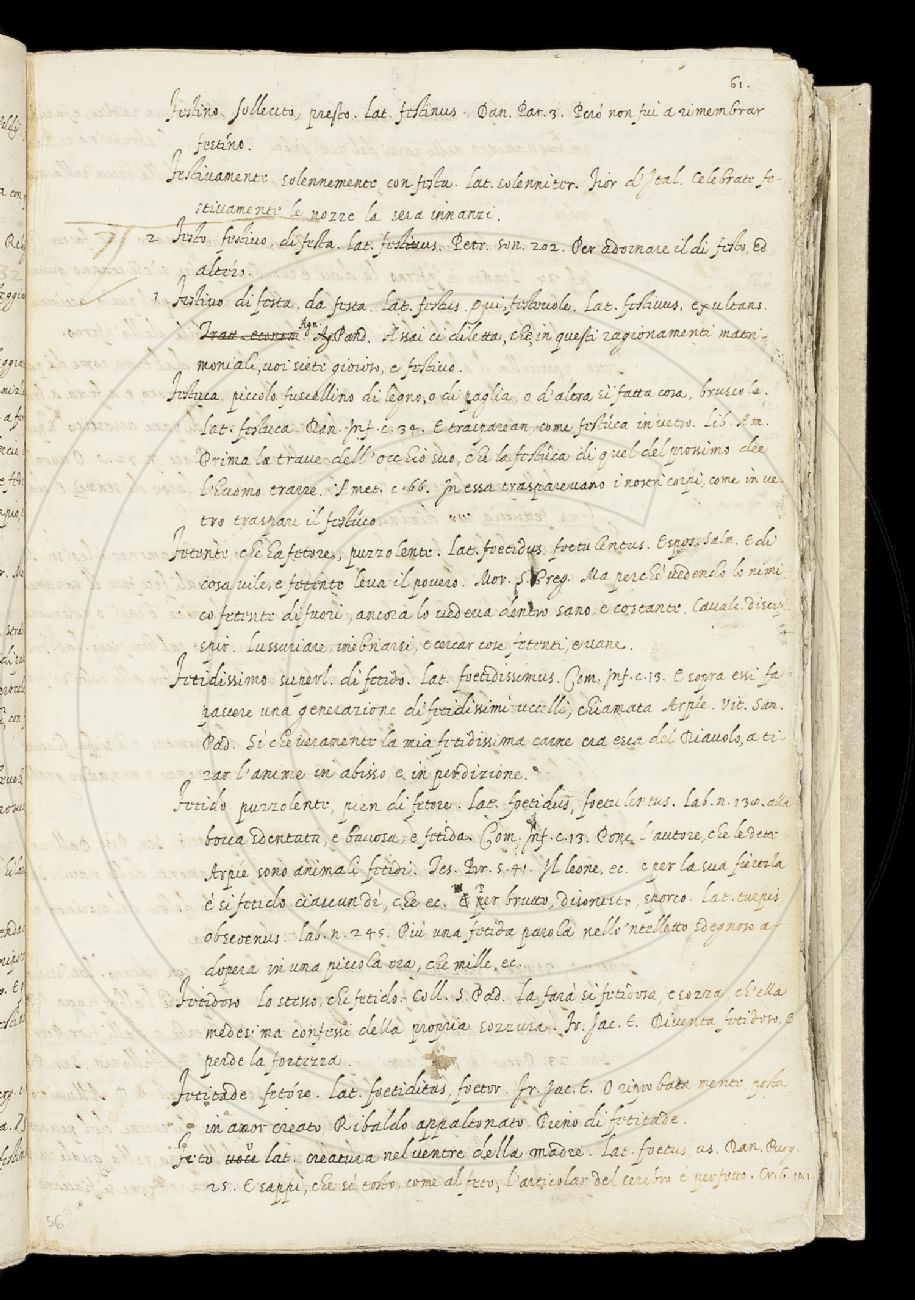 61.
Festino, sollecito, presto. Lat. festinus. Dan. Par. 3. Però non fui a rimembrar
festino.
Festivamente solennemente, con festa. Lat. solenniter. Fior. d'Ital. Celebrate fe-
stivamente le nozze la sera innanzi.
2 Festo, festivo, di festa. lat. festivus. Petr. son. 202. Per adornare il dì festo, ed
altéro.
1 Festivo di festa, da festa. Lat. festus. qui, festevole. Lat. festivus, exultans.
Agn. Pand. Assai ci diletta, che in questi ragionamenti matri-
moniali, voi sieti gioioso, e festivo.
Festuca, piccolo fuscellino di legno, o di paglia, o d'altra sì fatta cosa, bruscolo.
Lat. festuca. Dan. Inf. c. 34. E trasparean come festúca in vetro. Lib. Am.
Prima la trave dell'occhio suo, che la festúca di quel del prossimo dee
l'huomo trarre. c. 66. In essa trasparevano i nostri corpi, come in ve-
tro traspare il festúco.
Fetente che ha fetore, puzzolente. Lat. foetidus, foetulentus. Espos. Salm. E di
cosa vile, e fetente leva il povero. Mor. S. Greg. Ma perchè vedendolo nimi-
co fetente di fuori, ancora lo vedeva dentro sano, e costante. Cavalc. Discip.
spir. Lussuriare, inebriarsi, e cercar cose fetenti, e vane.
Fetidissimo superl. di fetido. Lat. foetidissimus. Com. Inf. c. 13. E sopra essi fa
parere una generazione di fetidissimi uccelli, chiamata Arpíe. Vit. San.
Pad. Sì che veramente la mia fetidissima carne era esca del Diavolo, a ti-
rar l'anime in abisso, e in perdizione.
Fetido, puzzolente, pien di fetore. Lat. foetidus, foetulentus. Lab. n. 130. alla
bocca sdentata, e bavosa, e fetida. Com. Inf. c. 13. Pone l'autore, che le dette
Arpíe sono animali fetidi. Tes. Br. 5. 41. Il leone, ec. e per la sua
è sì fetido ciascun dì, che ec. per brutto, disonesto, sporco. Lat. turpis
obscenus. Lab. n. 245. Più una fetida parola nello 'ntelletto sdegnoso a-
dopera in una piccola ora, che mille, ec.
Fetidoso lo stesso, che fetido. Coll. S. Pad. La farà sì fetidosa, e sozza ch'ella
medesima confessi della propria sozzura. Fr. Jac. T. Diventa fetidoso, e
perde la fortezza.
Fetitade fetóre. Lat. foetiditas, foetor. Fr. Jac. T. O riprobata mente, posta
in amor creato, Ribaldo appaltonato, Pieno di fetitade.
Feto voce lat. creatura nel ventre della madre. Lat. foetus, us. Dan. Purg.
25. E sappi, che sì tosto, come al feto, L'articolar del cerebro è perfetto. Cr. 6. 10. 1
56